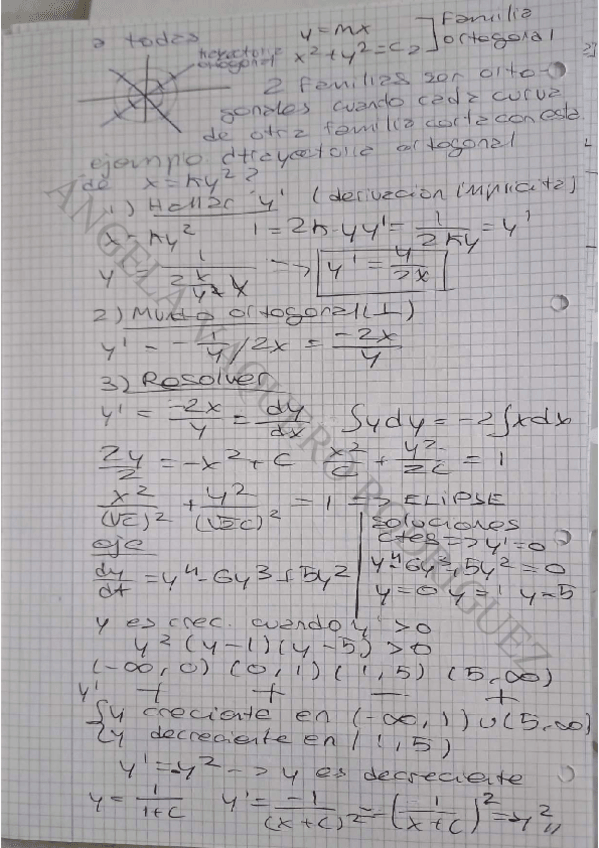 a todas
y=mx
x²+y²=c₂ ] Familia ortogonal
2 familias son orto-
gonales cuando cada curva
de otra familia corta con esta
ejemplo: dtrayectoria ortogonal
de x=ky²?
1) Hallar y' (derivacion implicita)
x=ky² 1=2k·yy'= 1/2ky = y'
y' = 1/(2 x/y² y) --> y' = y/2x
2) Mundo ortogonal (⊥)
y' = -1/y/2x = -2x/y
3) Resolver
y' = -2x/y = dy/dx ∫ydy=-2∫xdx
2y/2 = -x²+c x²/c + y²/2c = 1
x²/(√c)² + y²/(√2c)² = 1 => ELIPSE
eje
dy/dt = y⁴-6y³+5y²
soluciones
ctes => y'=0
y⁴-6y³+5y²=0
y=0 y=1 y=5
y es crec. cuando y'>0
y²(y-1)(y-5)>0
(-∞,0) (0,1) (1,5) (5,∞)
y' + + - +
{y creciente en (-∞,1)∪(5,∞)
{y decreciente en (1,5)
y'=-y² -> y es decreciente
y= 1/1+c y'= -1/(x+c)² = -(1/x+c)² = -y²,,
ANGELA NIGUERO RODRIGUEZ